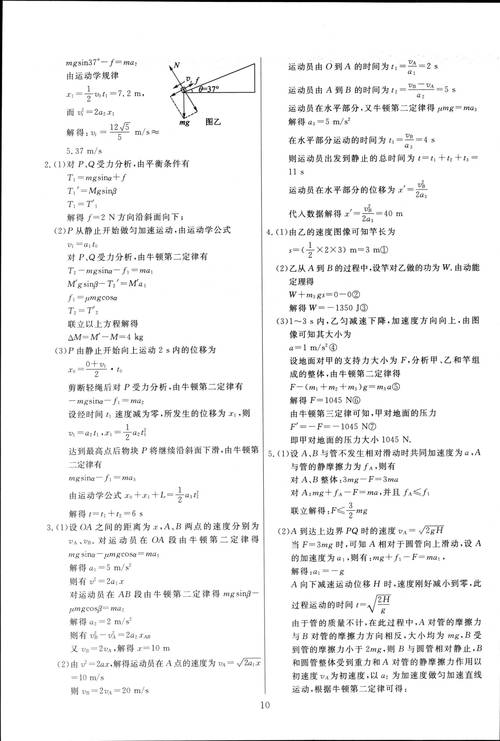 mgsin37°−f=ma₂
由运动学规律
x₁=½v₀t₁=7.2 m,
而 v₁²=2a₂x₁
解得:v₁=12√5/5 m/s≈
5.37 m/s
N
v
f
θ=37°
mg
图乙
2.(1)对 P、Q受力分析,由平衡条件有
T₁=mgsinα+f
T₁′=Mgsinβ
T₁=T₁′
解得 f=2 N 方向沿斜面向下;
(2)P从静止开始做匀加速运动,由运动学公式
v₁=a₁t₀
对 P、Q受力分析,由牛顿第二定律有
T₂−mgsinα−f₁=ma₁
M′gsinβ−T₂′=M′a₁
f₁=μmgcosα
T₂=T₂′
联立以上方程解得
ΔM=M′−M=4 kg
(3)P由静止开始向上运动 2 s内的位移为
x₀=(0+v₁)/2·t₀
剪断轻绳后对 P受力分析,由牛顿第二定律有
−mgsinα−f₁=ma₂
设经时间 t₁ 速度减为零,所发生的位移为 x₁,则
v₁=a₂t₁,x₁=½a₂t₁²
达到最高点后物块 P将继续沿斜面下滑,由牛顿第
二定律有
mgsinα−f₁=ma₃
由运动学公式 x₀+x₁+L=½a₃t₂²
解得 t=t₁+t₂=6 s
3.(1)设 OA 之间的距离为 x,A、B 两点的速度分别为
vA、vB, 对运动员在 OA 段由牛顿第二定律得
mgsinα−μmgcosα=ma₁
解得 a₁=5 m/s²
则有 v²=2a₁x
对运动员在 AB段由牛顿第二定律得 mgsinβ−
μmgcosβ=ma₂
解得 a₂=2 m/s²
则有 vB²−vA²=2a₂xAB
又 vB=2vA,解得 x=10 m
(2)由 v²=2ax,解得运动员在 A点的速度为 vA=√2a₁x
=10 m/s
则 vB=2vA=20 m/s
运动员由 O到 A 的时间为 t₁=vA/a₁=2 s
运动员由 A到 B 的时间为 t₂=(vB−vA)/a₂=5 s
运动员在水平部分,又牛顿第二定律得 μmg=ma₃
解得 a₃=5 m/s²
在水平部分运动的时间为 t₃=vB/a₃=4 s
则运动员出发到静止的总时间为 t=t₁+t₂+t₃=
11 s
运动员在水平部分的位移为 x′=vB²/2a₃
代入数据解得 x′=vB²/2a₃=40 m
4.(1)由乙的速度图像可知竿长为
s=(½×2×3) m=3 m①
(2)乙从 A到 B的过程中,设竿对乙做的功为 W,由动能
定理得
W+m₂gs=0−0②
解得 W=−1350 J③
(3)1~3 s内,乙匀减速下降,加速度方向向上,由图
像可知其大小为
a=1 m/s²④
设地面对甲的支持力大小为 F,分析甲、乙和竿组
成的整体,由牛顿第二定律得
F−(m₁+m₂+m₃)g=m₂a⑤
解得 F=1045 N⑥
由牛顿第三定律可知,甲对地面的压力
F′=−F=−1045 N⑦
即甲对地面的压力大小 1045 N.
5.(1)设 A、B与管不发生相对滑动时共同加速度为 a,A
与管的静摩擦力为 fA,则有
对 A、B整体:3mg−F=3ma
对 A:mg+fA−F=ma,并且 fA≤f₁
联立解得:F≤3/2mg
(2)A到达上边界 PQ时的速度 vA=√2gH
当 F=3mg时,可知 A相对于圆管向上滑动,设 A
的加速度为 a₁,则有:mg+f₁−F=ma₁,
解得:a₁=−g
A向下减速运动位移 H时,速度刚好减小到零,此
过程运动的时间 t=√(2H/g)
由于管的质量不计,在此过程中,A 对管的摩擦力
与 B对管的摩擦力方向相反,大小均为 mg,B 受
到管的摩擦力小于 2mg,则 B 与圆管相对静止,B
和圆管整体受到重力和 A 对管的静摩擦力作用以
初速度 vA为初速度,以 a₂ 为加速度做匀加速直线
运动,根据牛顿第二定律可得:
10